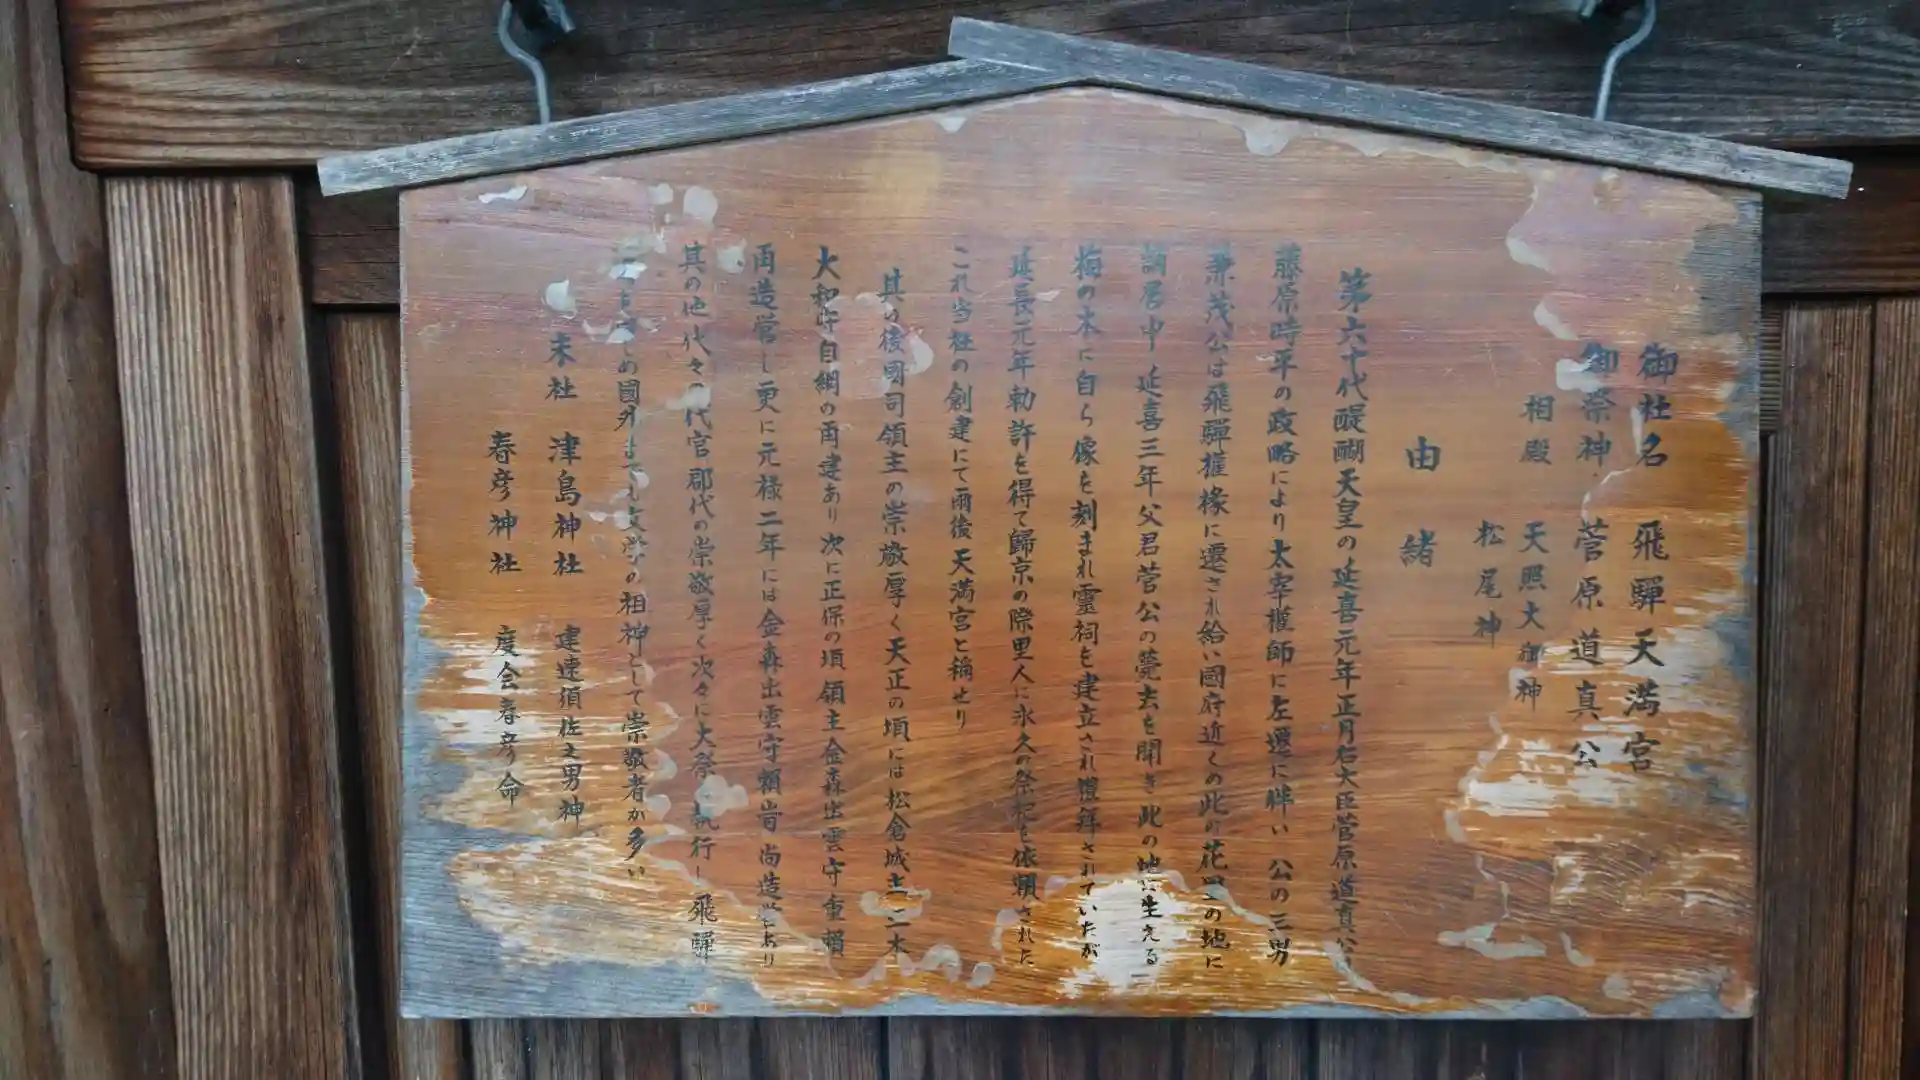 御社名 飛驒天満宮
御祭神 菅原道真公
相殿 天照大御神
松尾神
由緒
第六十代醍醐天皇の延喜元年正月右大臣菅原道真公
藤原時平の政略により太宰権師に左遷に伴い 公の三男
兼茂公は飛驒権椽に遷され給い國府近くの此の花里の地に
謫居中 延喜三年父君菅公の薨去を聞き 此の地に生える
梅の木に自ら像を刻まれ霊祠を建立され禮拜されていたが
延長元年勅許を得て歸京の際里人に永久の祭祀を依頼された
これ当社の創建にて爾後天満宮と稱せり
其の後國司領主の崇敬厚く天正の頃には松倉城主三木
大和守自綱の再建あり次に正保の頃領主金森出雲守重頼
再造営し更に元禄二年には金森出雲守頼旹 尚造営あり
其の他代々の代官郡代の崇敬厚く次々に大祭を執行し飛驒
はじめ國外までも文学の祖神として崇敬者が多い
末社 津島神社 建速須佐之男神
春彦神社 度会春彦命